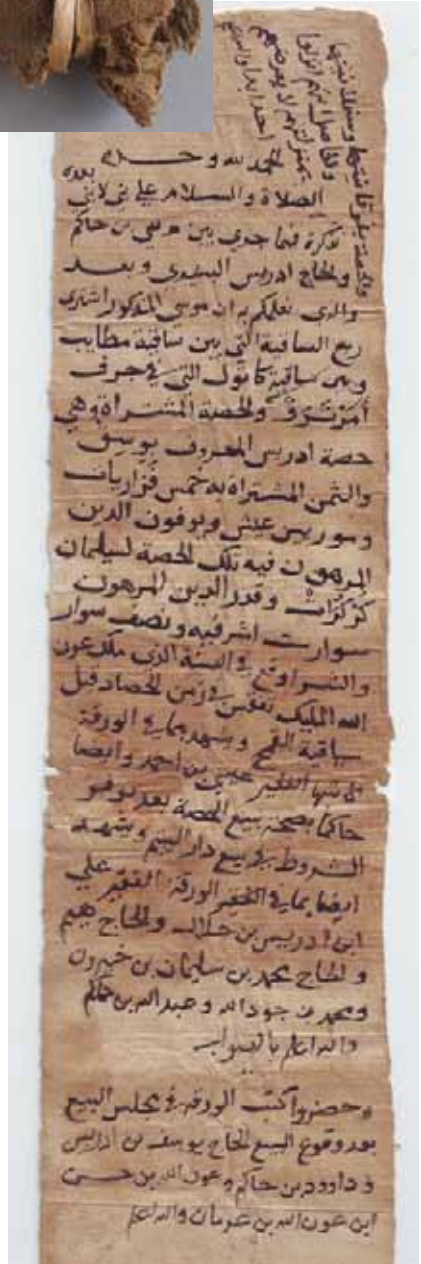 الحمد لله وحده
الصلاة والسلام على نبي لا نبي بعده
تذكرة فيما جرى بين موسى بن حاكم
والحاج ادريس السعدي وبعد
والذي نعلمكم به ان موسى المذكور اشترى
ربع الساقية التي بين ساقية مطايب
وبين ساقية كاتول التي في جرف
والحصة المشتراة وهي
حصة ادريس المعروف بوسق
والثمن المشتراة به خمس قزاريات
وسوربين عيش ويوفون الدين
المرهون فيه تلك الحصة لسليمان
وقدر الدين المرهون
سوارت اشرفيه ونصف سوار
والشراء وقع في السنة الذي ملك عون
الله المليك في زمن الحصاد قبل
ساقية القمح وشهد بما في الورقة
كاتبها الفقير عيسى بن احمد وايضا
حاكما بصحة بيع الحصة بعد توفر
الشروط في بيع دار اليتيم وشهد
ايضا بما في الورقة الفقير علي
ابن ادريس بن جلال والحاج هيم
والحاج محمد بن سليمان بن خيرون
ومحمد بن جود الله وعبد الله بن حاكم
والله اعلم بالصواب
وحضروا كتب الورقة في مجلس البيع
بعد وقوع البيع الحاج يوسف بن ادريس
وداوود بن حاكم وعون الله بن حسن
ابن عون الله بن عرمان والله اعلم
والحصة بفوقانيتها وسفلانيتها
والحاصل انهم انزلوا
بمنزلتهم لا يعرضهم
احد ابدا